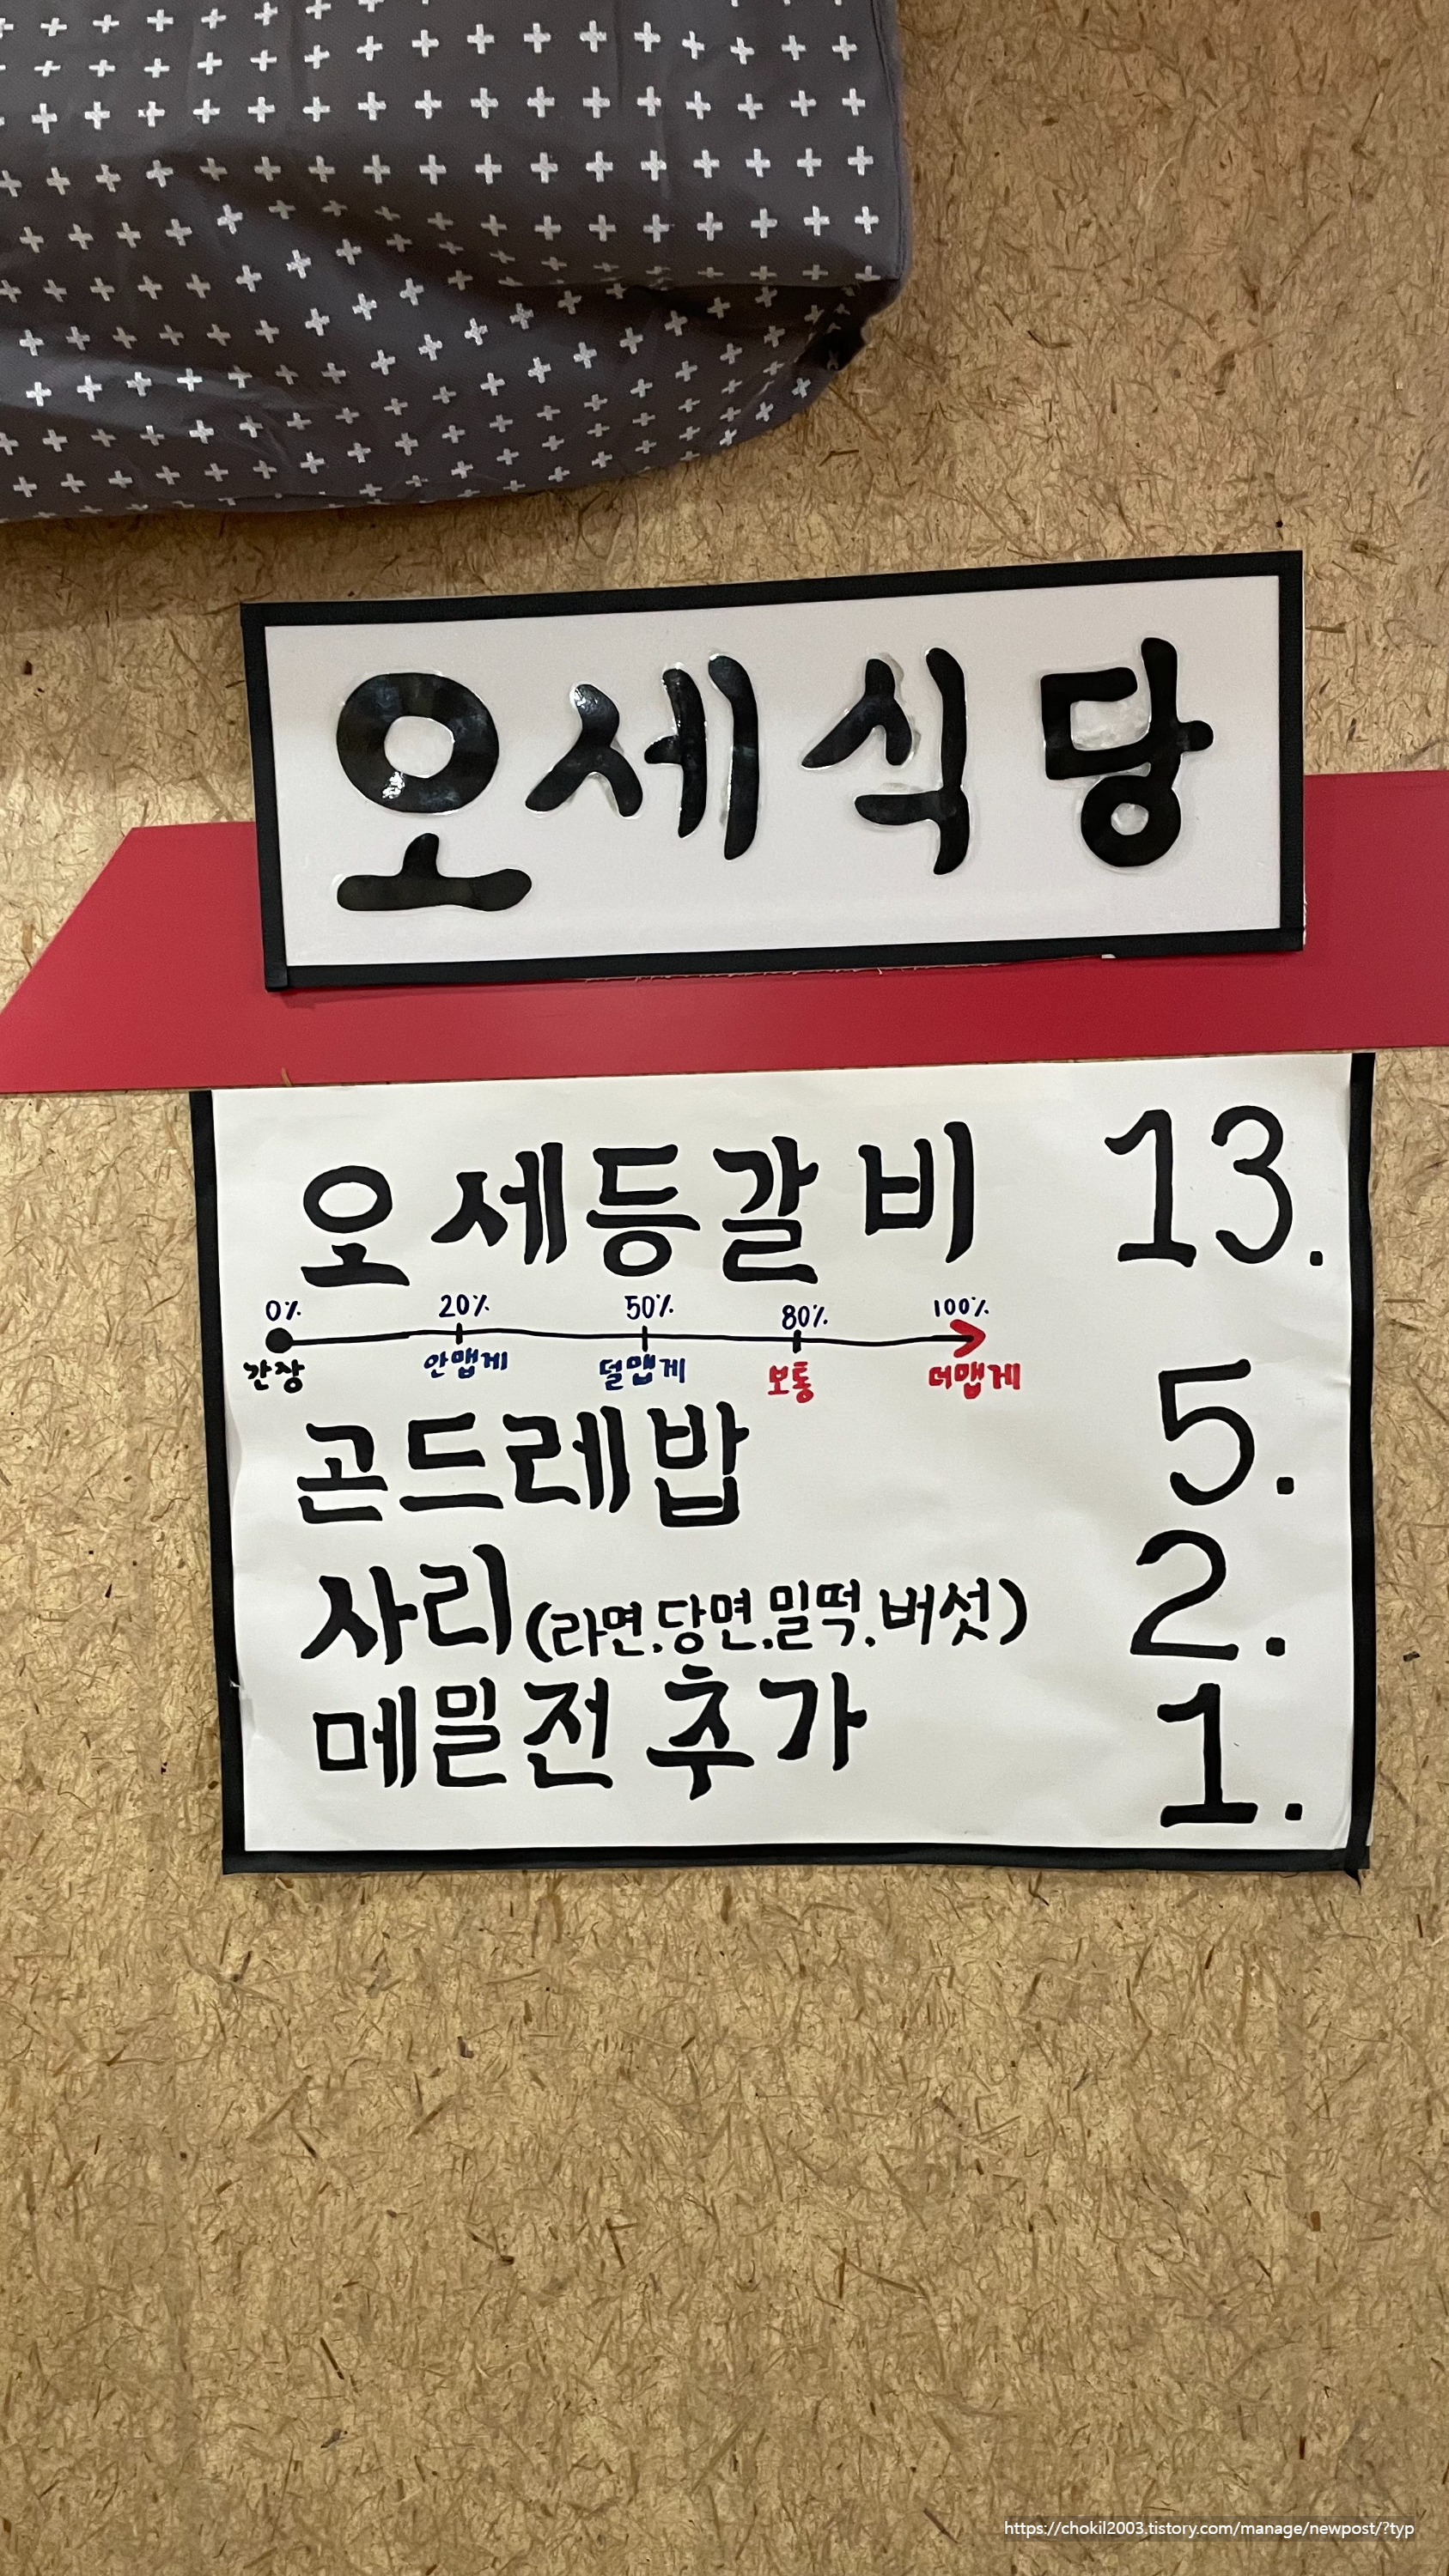 오세식당
오세등갈비 13.
0% 20% 50% 80% 100%
간장 안맵게 덜맵게 보통 더맵게
곤드레밥 5.
사리(라면,당면,밀떡,버섯) 2.
메밀전 추가 1.
https://chokil2003.tistory.com/manage/newpost/?typ